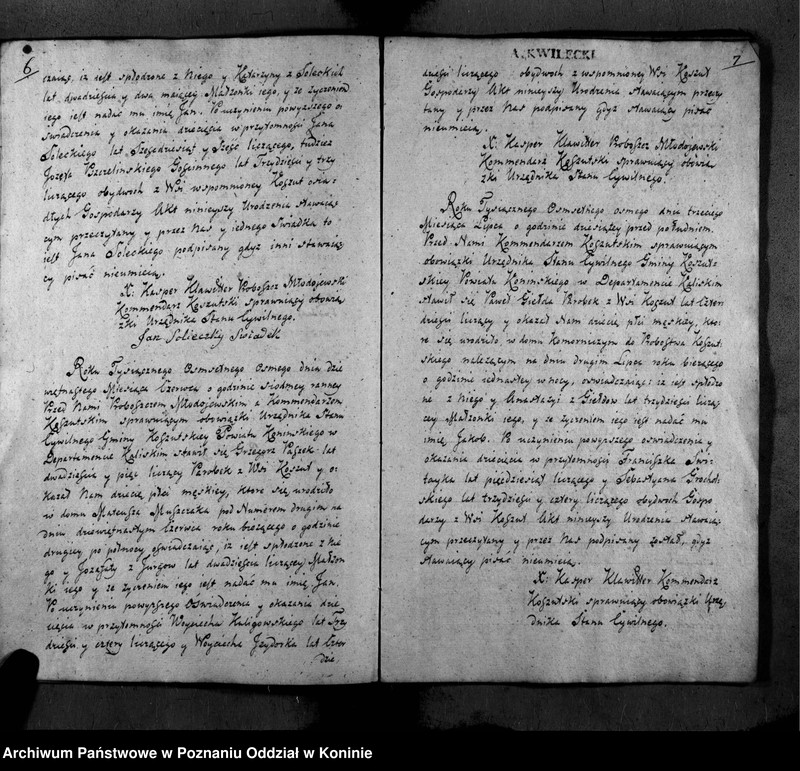 6
czaiąc, iż iest spłodzone z Niego y Katarzyny z Soleckich
lat dwadzieścia y dwa maiącey Małżonki iego, y że życzeniem
iego iest nadać mu imię Jan. Po uczynieniu powyższego o:
świadczenia y okazania dziecięcia w przytomności Jana
Soleckiego lat Sześćdziesiąt y Sześć liczącego, tudzież
Józefa Pszczelinskiego Gościnnego lat Trzydzieści y trzy
liczącego obydwoch z Wsi wspomnioney Koszut osia:
dłych Gospodarzy Akt ninieyszy Urodzenia stawaią:
cym przeczytany y przez Nas y iednego Swiadka to
iest Jana Soleckiego podpisany gdyż inni stawaią:
cy pisać nieumieią.
X: Kasper Klawitter Proboszcz Młodojewski
Kommendarz Koszutski sprawuiący obowią
zki Urzędnika Stanu Cywilnego.
Jan Solieczky Swiadek
Roku Tysiącznego Osmsetnego Osmego dnia dzie
więtnastego Miesiąca Czerwca o godzinie siodmey ranney
Przed Nami Proboszczem Młodojewskim a Kommendarzem
Koszutskim sprawuiącym obowiązki Urzędnika Stanu
Cywilnego Gminy Koszutskiey Powiatu Koninskiego w
Departamencie Kaliskim stawił się Grzegorz Paszek lat
dwadzieścia y pięć liczący Parobek z Wsi Koszut y o:
kazał Nam dziecie płci męskiey, ktore się urodziło
w domu Mateusza Muszczaka pod Numerem drugim na
dniu dziewiętnastym Czerwca roku bieżącego o godzinie
drugiey po połnocy oświadczaiąc, iż iest spłodzone z Nie
go y Jozefaty z Jurgow lat dwadzieścia liczącey Małżon
ki iego y że życzeniem iego iest nadać mu imię Jan.
Po uczynieniu powyższego Oświadczenia y okazania dzie
cięcia w przytomności Woyciecha Kuligowskiego lat Trzy
dzieści y cztery liczącego y Woyciecha Izydorka lat Czter
dzie.
A. KWILECKI
7
dzieści liczącego obydwoch z wspomnioney Wsi Koszut
Gospodarzy Akt ninieyszy Urodzenia stawaiącym przeczy
tany y przez Nas podpisany gdyż stawaiący pisać
nieumieią.
X: Kasper Klawitter Proboszcz Młodojewski
Kommendarz Koszutski sprawuiący obowią
zki Urzędnika Stanu Cywilnego.
Roku Tysiącznego Osmsetnego osmego dnia trzeciego
Miesiąca Lipca o godzinie dziesiątey przed południem.
Przed Nami Kommendarzem Koszutskim sprawuiącym
obowiązki Urzędnika Stanu Cywilnego Gminy Koszut:
skiey Powiatu Koninskiego w Departamencie Kaliskim
stawił się Paweł Giełda Parobek z Wsi Koszut lat Czter
dzieści liczący y okazał Nam dziecię płci męskiey, kto:
re się urodziło w domu Komorniczym do Probostwa Koszut:
skiego należącym na dniu drugim Lipca roku bieżącego
o godzinie iednastey w nocy, oświadczaiąc: iż iest spłodzo
ne z Niego y Anastazyi z Giełdow lat trzydzieści liczą:
cey Małżonki iego, y że życzeniem iego iest nadać mu
imię Jakob. Po uczynieniu powyższego oświadczenia y
okazania dziecięcia w przytomności Franciszka Swir
tazyka lat pięćdziesiąt liczącego y Sebastyana Grochol
skiego lat trzydzieści y cztery liczącego obydwoch Gospo
darzy z Wsi Koszut Akt ninieyszy Urodzenia stawaią:
cym przeczytany y przez Nas podpisany został, gdyż
stawaiący pisać nieumieią.
X: Kasper Klawitter Kommendarz
Koszutski sprawuiący obowiązki Urzę:
dnika Stanu Cywilnego.
Archiwum Państwowe w Poznaniu Oddział w Koninie